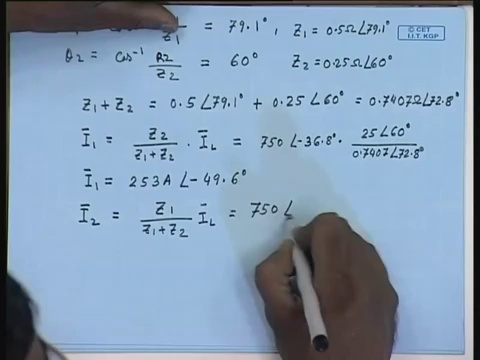 Z1 = 79.1°, Z1 = 0.5Ω∠79.1°
© CET
I.I.T. KGP
θ2 = cos⁻¹ R2/Z2 = 60° Z2 = 0.25Ω∠60°
Z1+Z2 = 0.5∠79.1° + 0.25∠60° = 0.7407Ω∠72.8°
Ī1 = Z2/(Z1+Z2) · ĪL = 750∠-36.8° · 25∠60°/0.7407∠72.8°
Ī1 = 253A∠-49.6°
Ī2 = Z1/(Z1+Z2) ĪL = 750∠